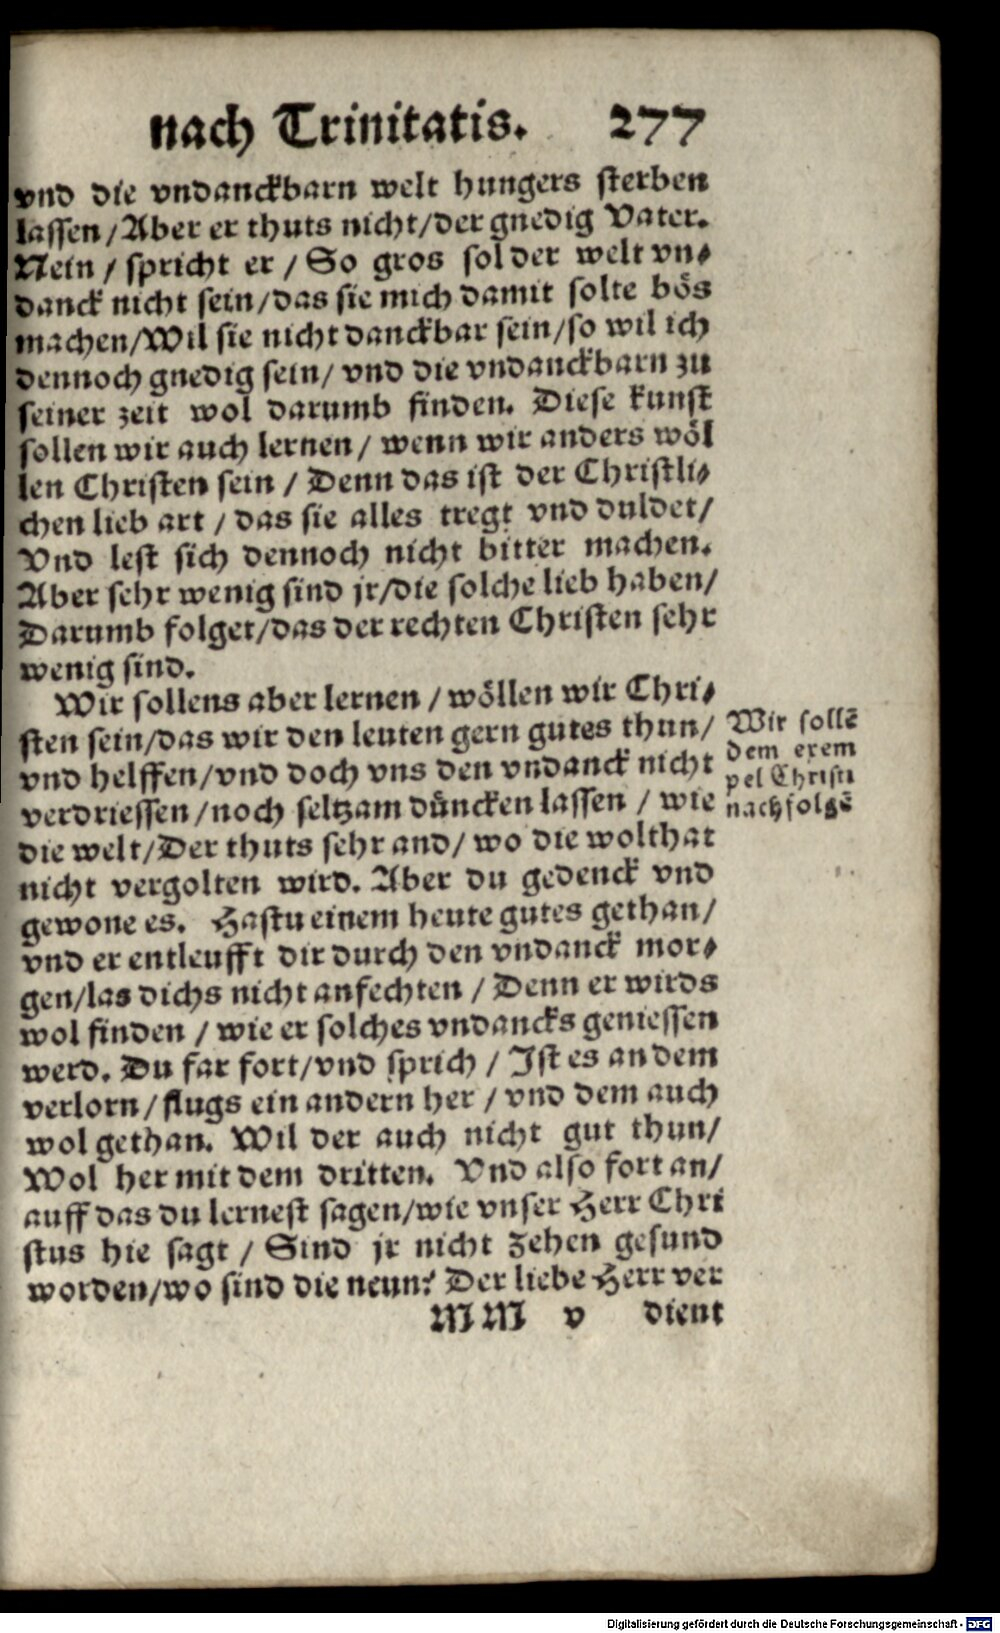 nach Trinitatis. 277
vnd die vndanckbarn welt hungers sterben
lassen/Aber er thuts nicht/der gnedig Vater.
Nein / spricht er / So gros sol der welt vn⸗
danck nicht sein/das sie mich damit solte bös
machen/Wil sie nicht danckbar sein/so wil ich
dennoch gnedig sein/ vnd die vndanckbarn zu
seiner zeit wol darumb finden. Diese kunst
sollen wir auch lernen/ wenn wir anders wöl
len Christen sein / Denn das ist der Christli⸗
chen lieb art / das sie alles tregt vnd duldet/
Vnd lest sich dennoch nicht bitter machen.
Aber sehr wenig sind jr/die solche lieb haben/
Darumb folget/das der rechten Christen sehr
wenig sind.
Wir sollens aber lernen / wöllen wir Chri⸗
sten sein/das wir den leuten gern gutes thun/
vnd helffen/vnd doch vns den vndanck nicht
verdriessen/noch seltzam düncken lassen / wie
die welt/Der thuts sehr and/ wo die wolthat
nicht vergolten wird. Aber du gedenck vnd
gewone es. Hastu einem heute gutes gethan/
vnd er entleufft dir durch den vndanck mor⸗
gen/las dichs nicht anfechten / Denn er wirds
wol finden / wie er solches vndancks geniessen
werd. Du far fort/vnd sprich / Ist es an dem
verlorn/ flugs ein andern her / vnd dem auch
wol gethan. Wil der auch nicht gut thun/
Wol her mit dem dritten. Vnd also fort an/
auff das du lernest sagen/wie vnser Herr Chri
stus hie sagt / Sind jr nicht zehen gesund
worden/wo sind die neun? Der liebe Herr ver
MM v dient
Wir sollē
dem exem
pel Christi
nachfolgē
Digitalisierung gefördert durch die Deutsche Forschungsgemeinschaft - DFG